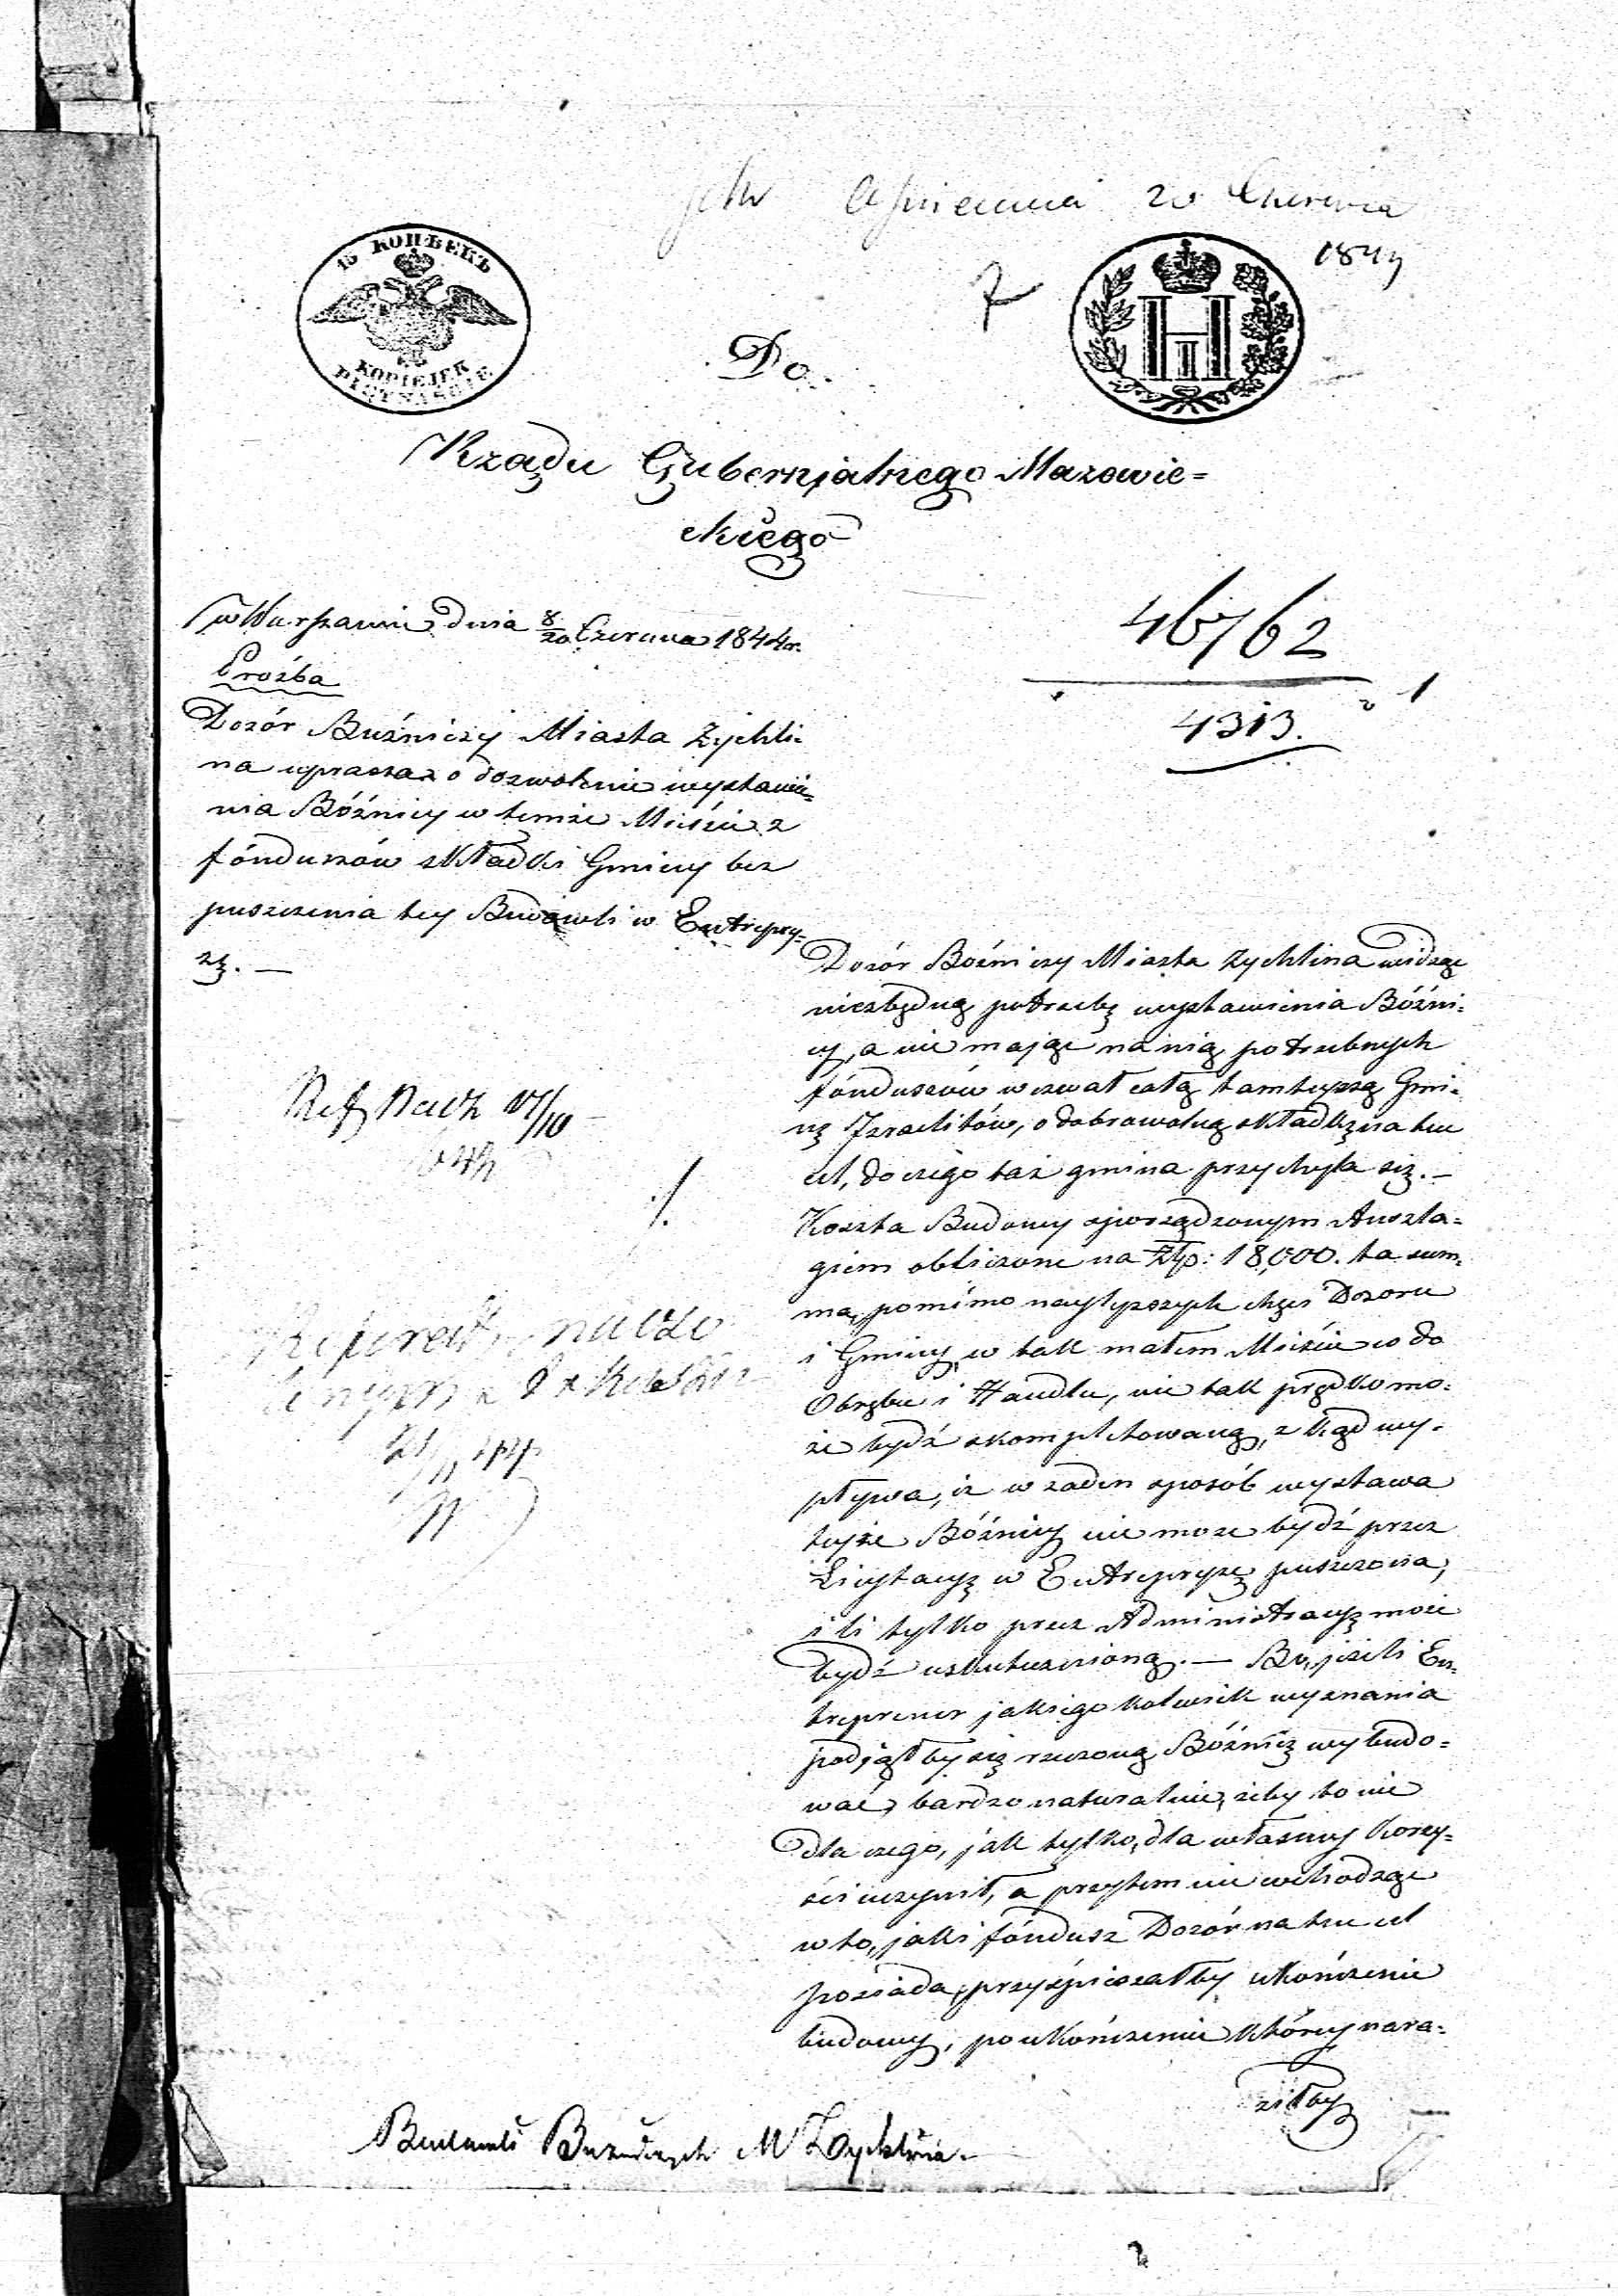 w Czerwca
1844
15 КОПѢЕКЪ
KOPIEJEK
PIĘTNAŚCIE
H
I
7
Do
Rządu Gubernjalnego Mazowie=
ckiego
w Warszawie dnia 8/20 Czerwca 1844 r.
Prośba
Dozór Buźniczy Miasta Żychli-
na uprasza o dozwolenie wystawie=
nia Bóźnicy w temże Mieście z
fónduszów składki Gminy bez
puszczenia tey Budowli w Entrepry=
zę. —
46762
4313.
1
Dozór Bóźniczy Miasta Żychlina widząc
niezbędną potrzebę wystawienia Bóźni=
cy, a nie mając na nią potrzebnych
fónduszów wezwał całą tamtejszą Gmi=
nę Izraelitów, o dobrowolną składkę na ten
cel, do czego taż gmina przychyla się. —
Koszta Budowy sporządzonym Anszla=
giem obliczone na Złp: 18,000. ta sum=
ma, pomimo naylepszych chęci Dozoru
i Gminy, w tak małem Mieście co do
Obrębu i Handlu, nie tak prędko mo=
że bydź skompletowaną, z kąd wy=
pływa, iż w żaden sposób wystawa
teyże Bóźnicy nie może bydź przez
Licytacyę w Entrepryzę puszczona,
i li tylko przez Administracyę może
bydź uskutecznioną. — Bo, jeżeli En=
treprener jakiego kolwiek wyznania
podjąłby się rzeczoną Bóźnicę wybudo=
wać, bardzo naturalnie, żeby to nie
dla czego, jak tylko, dla własney korzy=
ści uczynił, a przytem nie wchodząc
w to, jaki fóndusz Dozór na ten cel
posiada, przyśpieszałby ukończenie
budowy, po ukończeniu którey nara=
ziłby
Ref Bach VI/10
./.
Budowli Buźniczych M Żychlina.